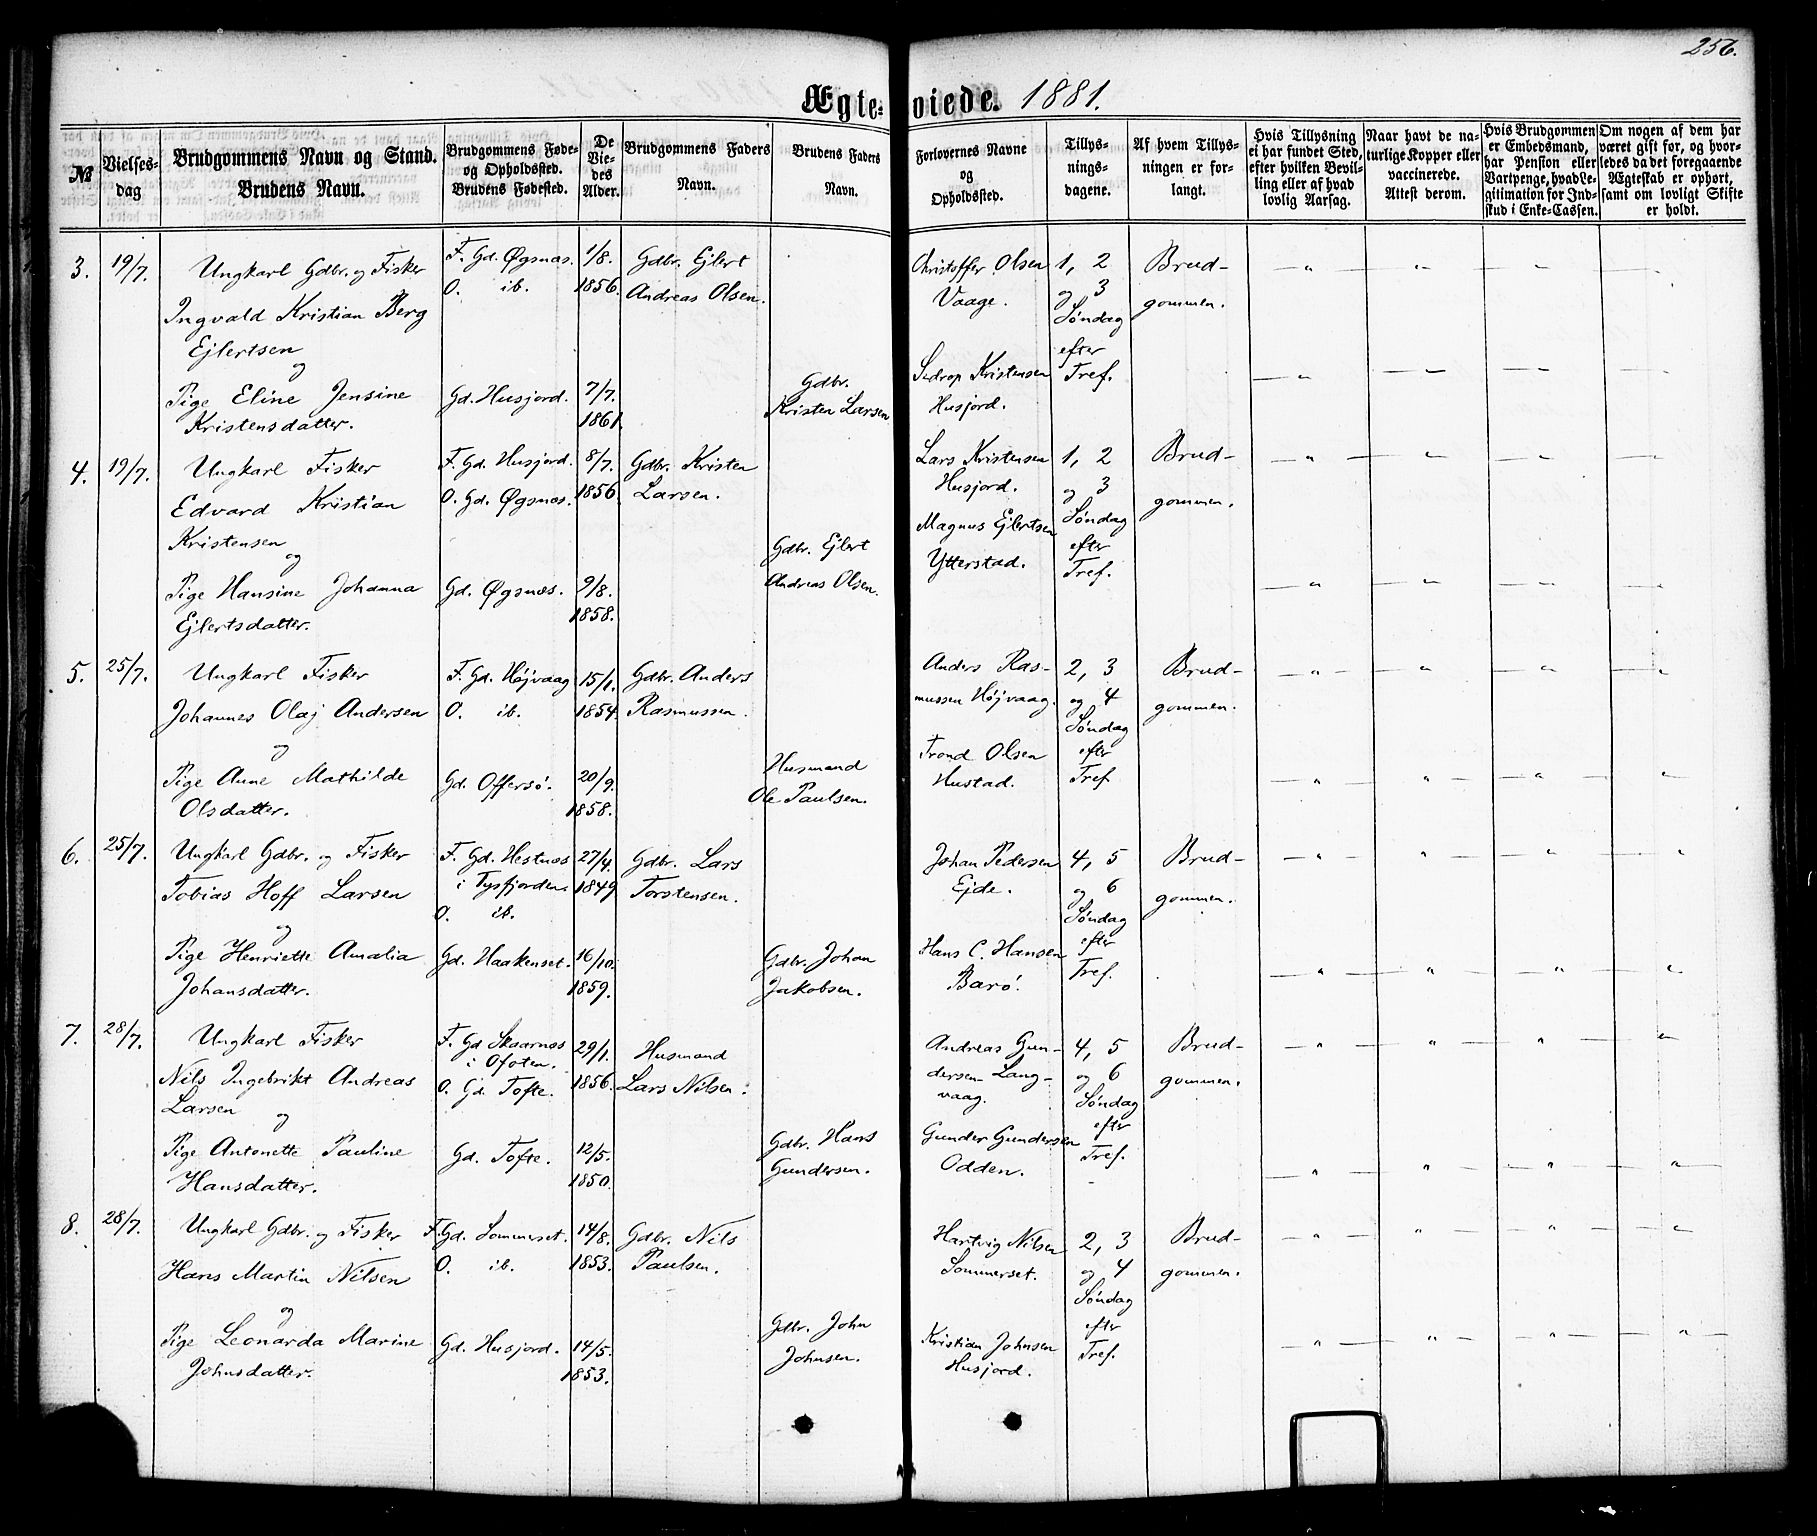 256.
Ægte-viede. 1881.
№
Vielses-
dag
Brudgommens Navn og Stand.
Brudens Navn.
Brudgommens Føde-
og Opholdssted.
Brudens Fødested.
De
Vie-
des
Alder.
Brudgommens Faders
Navn.
Brudens Faders
Navn.
Forlovernes Navne
og
Opholdssted.
Tillys-
nings-
dagene.
Af hvem Tillys-
ningen er for-
langt.
Hvis Tillysning
ei har fundet Sted,
efter hvilken Bevil-
ling eller af hvad
lovlig Aarsag.
Naar havt de na-
turlige Kopper eller
vaccinerede.
Attest derom.
Hvis Brudgommen
er Embedsmand,
har Pension eller
Vartpenge, hvad Le-
gitimation for Ind-
skud i Enke-Cassen.
Om nogen af dem har
været gift før, og hvor-
ledes da det foregaaende
Ægteskab er ophørt,
samt om lovligt Skifte
er holdt.
3. 19/7. Ungkarl Gdbr. og Fisker
Ingvald Kristian Berg
Ejlertsen
og
Pige Eline Jensine
Kristensdatter.
F. Gd. Øgsnæs.
O. ib.
Gd. Husjord.
1/8.
1856.
7/7.
1861.
Gdbr. Ejlert
Andreas Olsen.
Gdbr.
Kristen Larsen
Christoffer Olsen
Vaage.
Sedrop Kristensen
Husjord.
1, 2
og 3
Søndag
efter
Tref.
Brud-
gommen.
4. 19/7. Ungkarl Fisker
Edvard Kristian
Kristensen
og
Pige Hansine Johanna
Ejlertsdatter.
F. Gd. Husjord.
O. Gd. Øgsnæs.
Gd. Øgsnæs.
8/7.
1856.
9/8.
1858.
Gdbr. Kristen
Larsen.
Gdbr. Ejlert
Andreas Olsen.
Lars Kristensen
Husjord.
Magnus Ejlertsen
Ytterstad.
1, 2
og 3
Søndag
efter
Tref.
Brud-
gommen.
5. 25/7. Ungkarl Fisker
Johannes Olaj Andersen
og
Pige Anne Mathilde
Olsdatter.
F. Gd. Højvaag
O. ib.
Gd. Offersø.
15/1.
1854.
20/9.
1858.
Gdbr. Anders
Rasmussen.
Husmand
Ole Paulsen.
Anders Ras-
mussen Højvaag.
Trond Olsen
Hustad.
2, 3
og 4
Søndag
efter
Tref.
Brud-
gommen.
6. 25/7. Ungkarl Gdbr. og Fisker
Tobias Hoff Larsen
og
Pige Henriette Amalia
Johansdatter.
F. Gd. Hestnæs
i Tysfjorden.
O. ib.
Gd. Haakenset.
27/4.
1849
16/10.
1859.
Gdbr. Lars
Torstensen.
Gdbr. Johan
Jakobsen.
Johan Pedersen
Ejde.
Hans C. Hansen
Barø.
4, 5
og 6
Søndag
efter
Tref.
Brud-
gommen.
7. 28/7. Ungkarl Fisker
Nils Ingebrikt Andreas
Larsen
og
Pige Antonette Pauline
Hansdatter.
F. Gd Skaarnæs
i Ofoten.
O. Gd. Tofte.
Gd. Tofte.
29/1.
1856.
12/5.
1850.
Husmand
Lars Nilsen.
Gdbr. Hans
Gundersen.
Andreas Gun-
dersen Lang-
vaag.
Gunder Gundersen
Odden.
4, 5
og 6
Søndag
efter
Tref.
Brud-
gommen.
8. 28/7. Ungkarl Gdbr. og Fisker
Hans Martin Nilsen
og
Pige Leonarda Marine
Johnsdatter.
F. Gd. Sommerset.
O. ib.
Gd. Husjord.
14/8.
1853.
14/5.
1853.
Gdbr. Nils
Paulsen.
Gdbr. John
Johnsen.
Hartvig Nilsen
Sommerset.
Kristian Johnsen
Husjord.
2, 3
og 4
Søndag
efter
Tref.
Brud-
gommen.